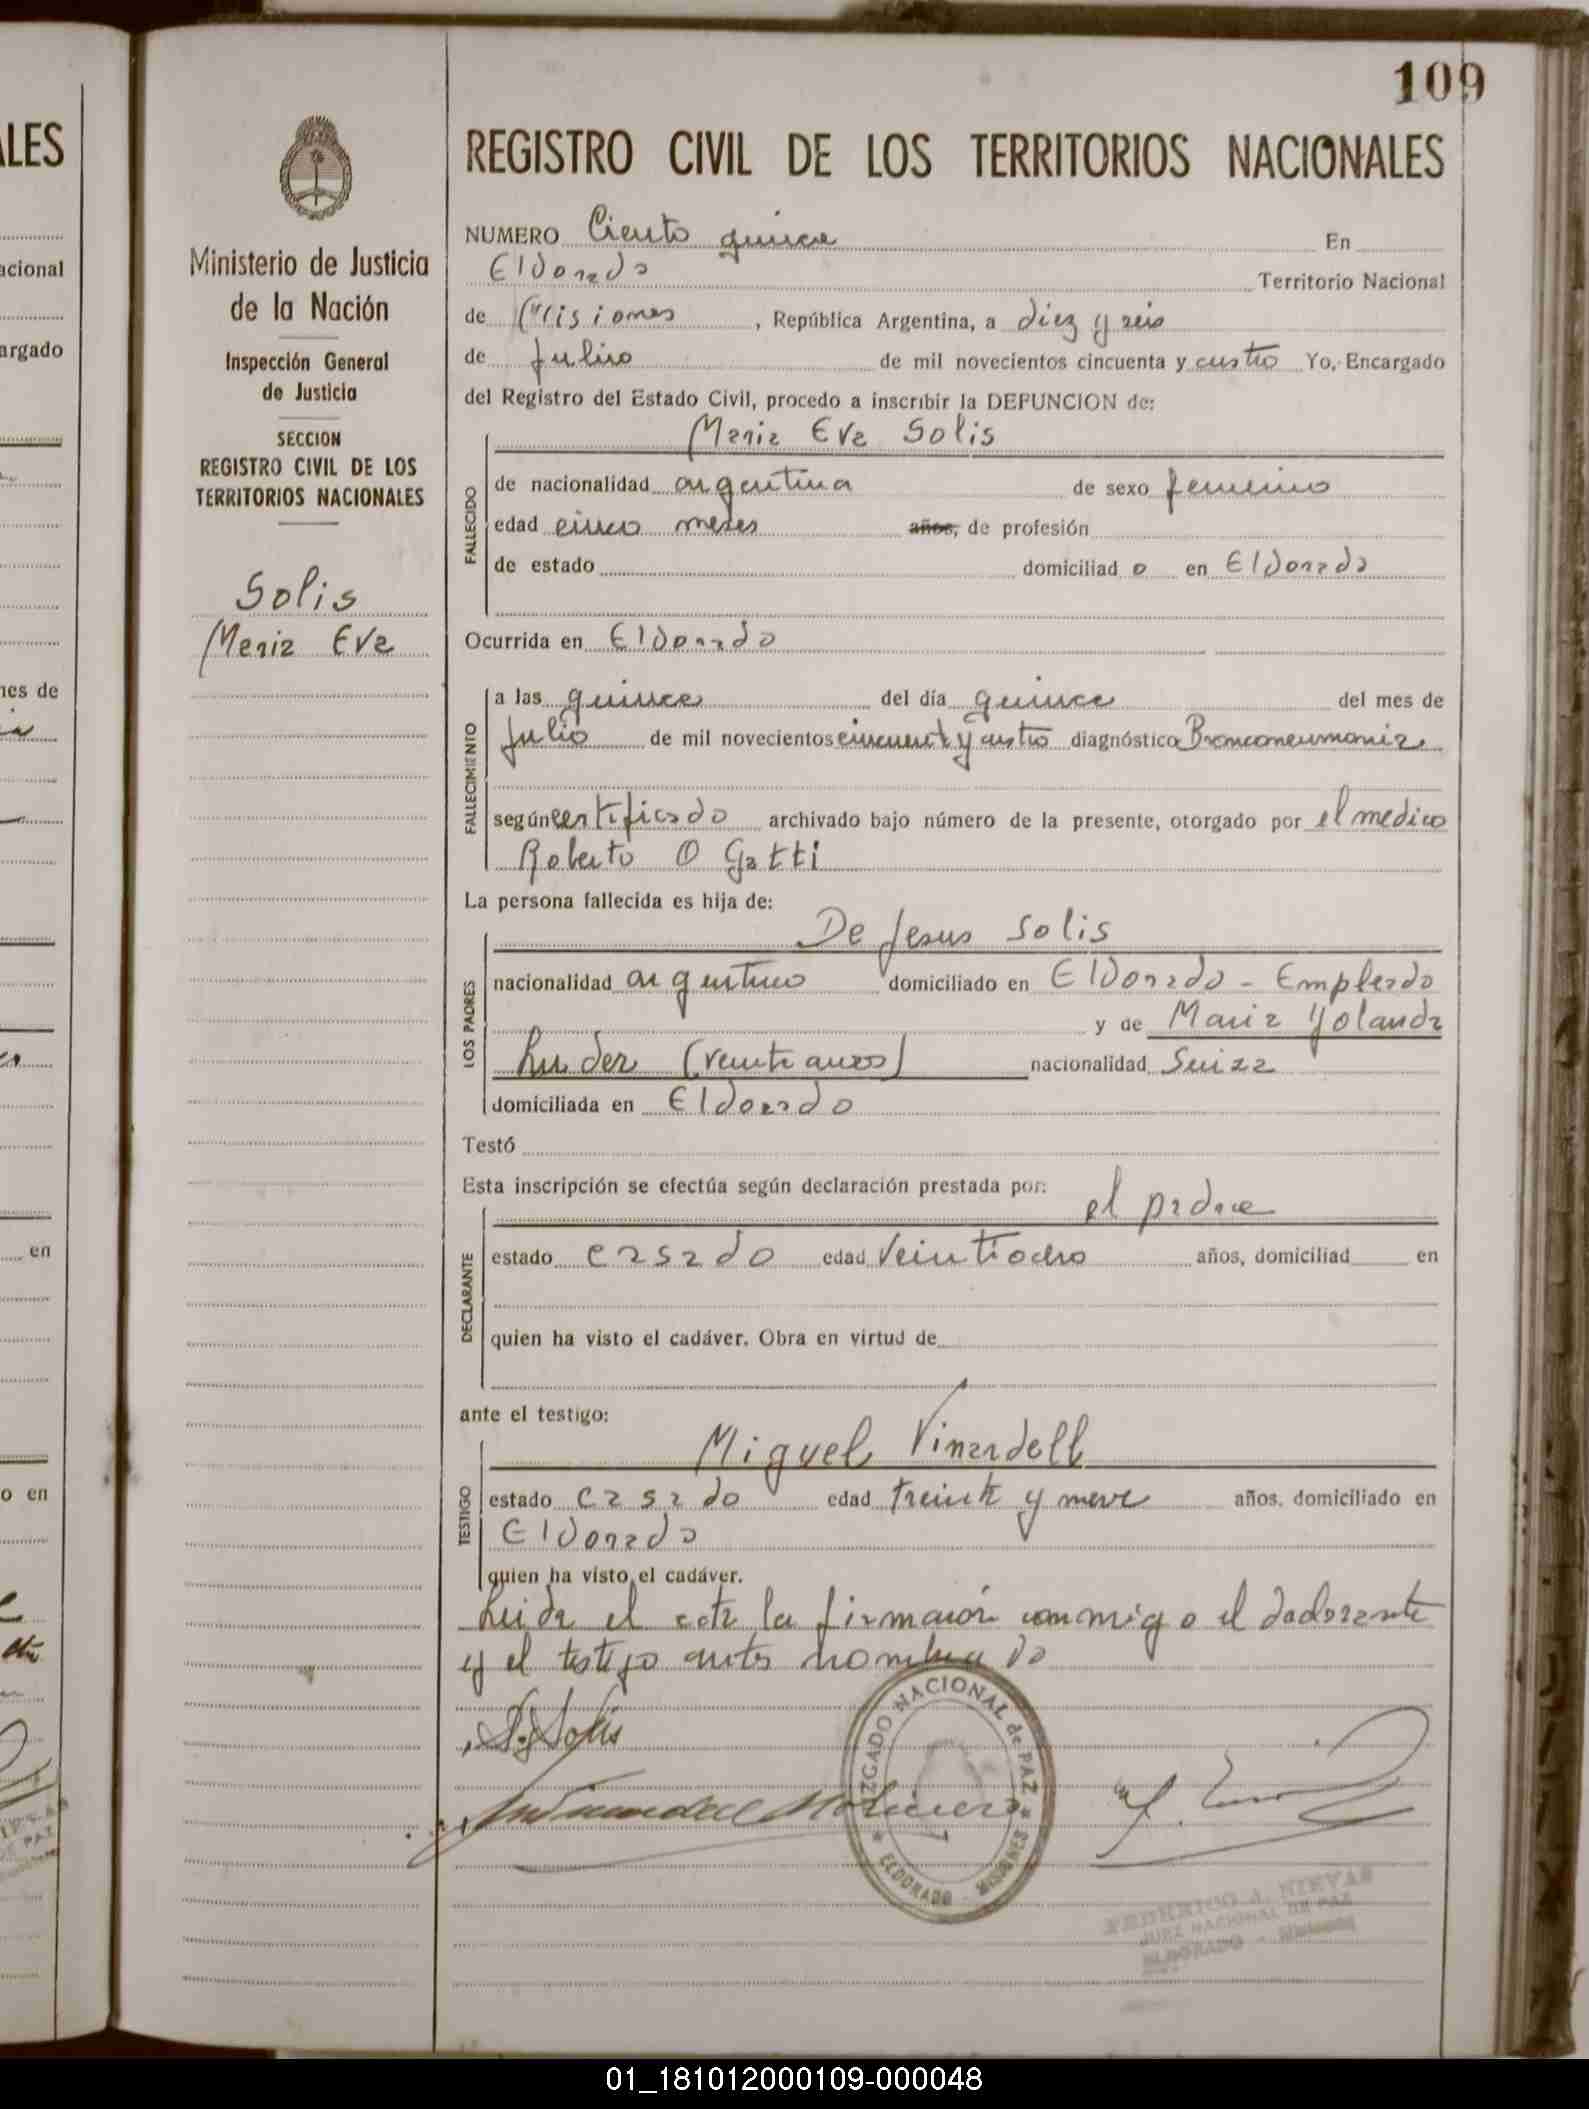 109
REGISTRO CIVIL DE LOS TERRITORIOS NACIONALES
Ministerio de Justicia
de la Nación
Inspección General
de Justicia
SECCION
REGISTRO CIVIL DE LOS
TERRITORIOS NACIONALES
Solis
Maria Eva
NUMERO Ciento quince En
Eldorado Territorio Nacional
de Misiones, República Argentina, a diez y seis
de Julio de mil novecientos cincuenta y cuatro Yo, Encargado
del Registro del Estado Civil, procedo a inscribir la DEFUNCION de:
Maria Eva Solis
FALLECIDO
de nacionalidad argentina de sexo femenino
edad cinco meses años, de profesión
de estado domiciliad o en Eldorado
Ocurrida en Eldorado
FALLECIMIENTO
a las quince del día quince del mes de
Julio de mil novecientos cincuenta y cuatro diagnóstico Bronconeumonia
según certificado archivado bajo número de la presente, otorgado por el medico
Roberto O Gatti
La persona fallecida es hija de:
De Jesus Solis
LOS PADRES
nacionalidad argentino domiciliado en Eldorado - Empleado
y de Maria Yolanda
(veinte anos) nacionalidad Suiza
domiciliada en Eldorado
Testó
Esta inscripción se efectúa según declaración prestada por:
el padre
DECLARANTE
estado casado edad veintiocho años, domiciliad en
quien ha visto el cadáver. Obra en virtud de
ante el testigo:
Miguel Vinardell
TESTIGO
estado casado edad treinta y nueve años, domiciliado en
Eldorado
quien ha visto el cadáver.
Leida el acta la firmaron conmigo el declarante
y el testigo antes nombrado
D. J. Solis
JUZGADO NACIONAL de PAZ
ELDORADO - MISIONES
FEDERICO J. NIEVAS
JUEZ NACIONAL DE PAZ
ELDORADO - Misiones
ALES
acional
argado
nes de
en
o en
01_181012000109-000048